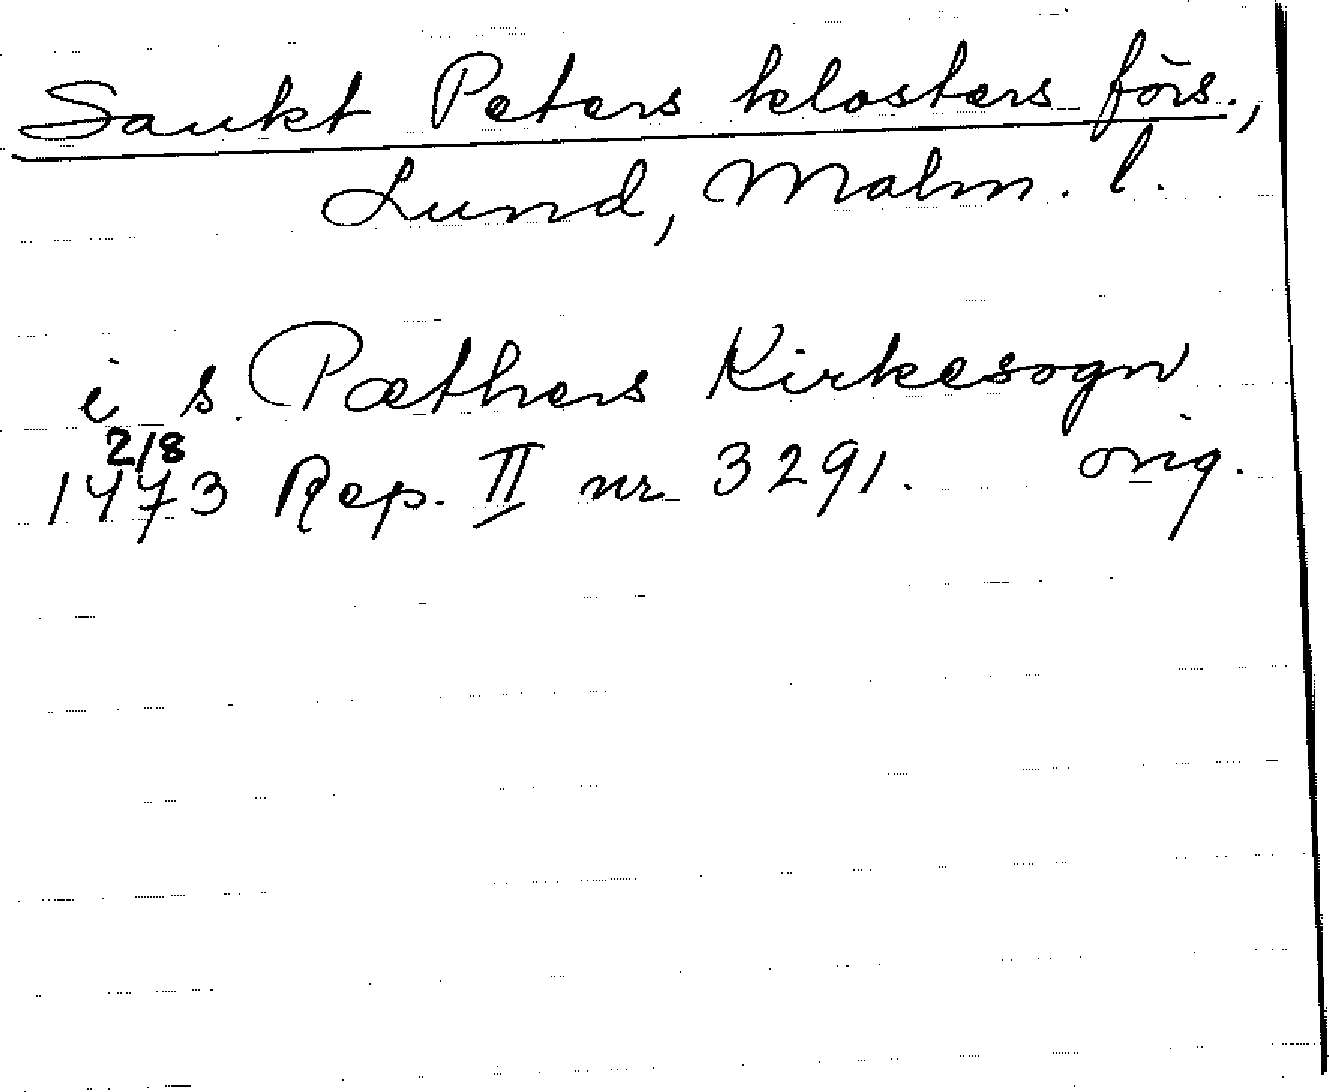 Sankt Peters klosters förs.,
Lund, Malm. l.
i s. Pæthers Kirkesogn
2/8
1473 Rep. II nr 3291. orig.